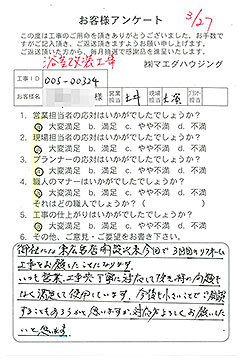 お客様アンケート
3/27
この度は工事のご用命を頂きありがとうございました。お手数で
すがご記入頂き、ご返送頂きますようお願い申し上げます。
ご返送頂いた方から、毎月抽選で感謝品を進呈いたします。
浴室改装工事
㈱マエダハウジング
工事ID
005-00324
様
営業担当
工事担当
1. 営業担当者の対応はいかがでしたでしょうか?
a. 大変満足 b. 満足 c. やや不満 d. 不満
2. 工事担当者の対応はいかがでしたでしょうか?
a. 大変満足 b. 満足 c. やや不満 d. 不満
3. プランナーの対応はいかがでしたでしょうか?
a. 大変満足 b. 満足 c. やや不満 d. 不満
4. 職人のマナーはいかがでしたでしょうか?
a. 大変満足 b. 満足 c. やや不満 d. 不満
それはどの職人でしょうか? ( )
5. 工事の仕上がりはいかがでしたでしょうか?
a. 大変満足 b. 満足 c. やや不満 d. 不満
6. その他、ご意見・ご要望をお書き下さい。
御社には東広島店開設以来今回で3回目のリフォーム
工事をお願いしたことになります。
いつも営業、工事共丁寧に対応して頂き何の問題も
なく満足して使用しています。今後も小さいことで御相談
することもあろうかと思いますが対応よろしくお願いした
いと思います。